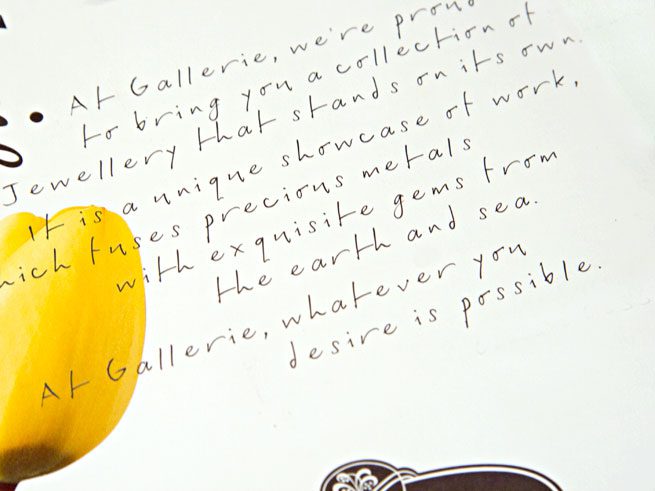 At Gallerie, we're proud
to bring you a collection of
Jewellery that stands on its own.
It is a unique showcase of work,
which fuses precious metals
with exquisite gems from
the earth and sea.
At Gallerie, whatever you
desire is possible.